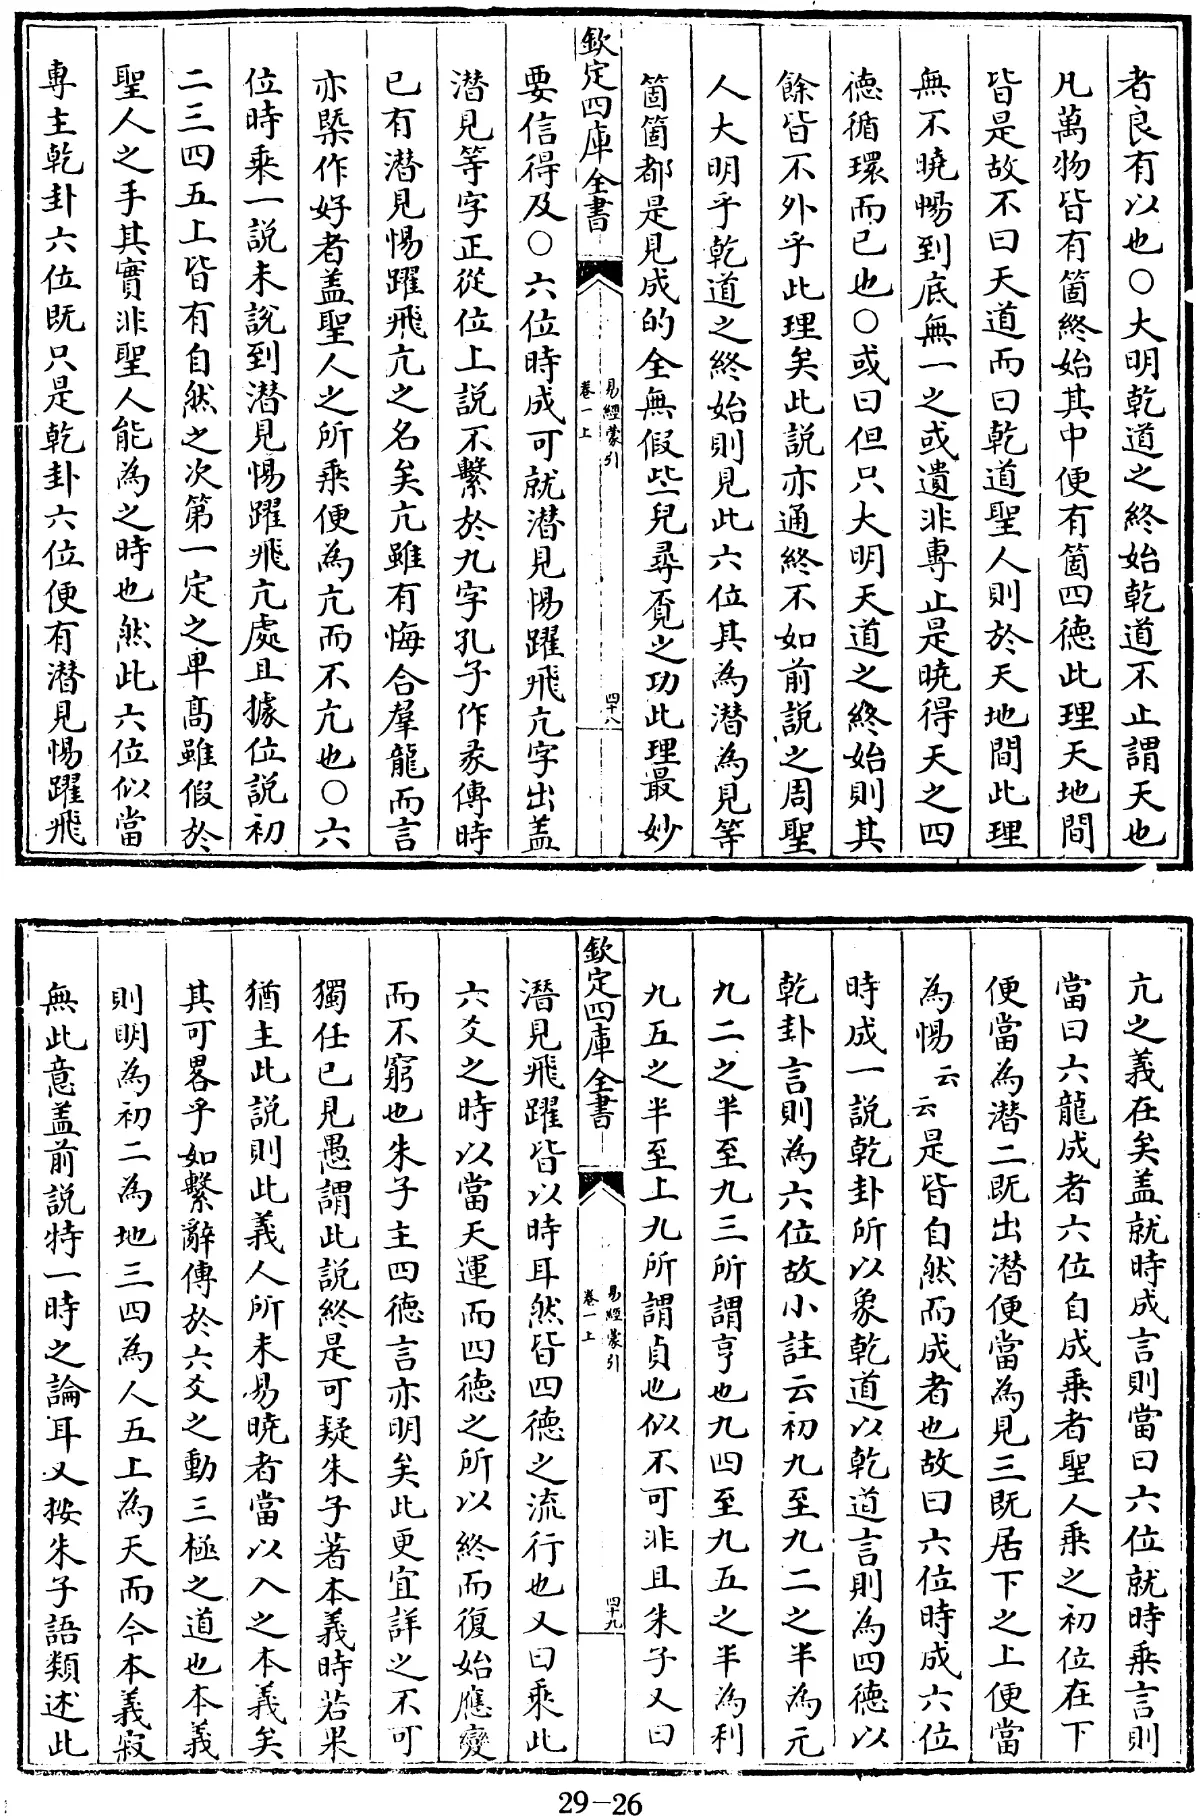 者良有以也○大明乾道之終始乾道不止謂天也
凡萬物皆有箇終始其中便有箇四徳此理天地間
皆是故不曰天道而曰乾道聖人則於天地間此理
無不曉暢到底無一之或遺非專止是曉得天之四
徳循環而已也○或曰但只大明天道之終始則其
餘皆不外乎此理矣此説亦通終不如前説之周聖
人大明乎乾道之終始則見此六位其為潜為見等
箇箇都是見成的全無假些兒尋覔之功此理最妙
欽定四庫全書
易經蒙引
卷一上
四十八
要信得及○六位時成可就潜見惕躍飛亢字出盖
潜見等字正從位上説不繫於九字孔子作彖傳時
已有潜見惕躍飛亢之名矣亢雖有悔合羣龍而言
亦槩作好者盖聖人之所乘便為亢而不亢也○六
位時乘一説未説到潜見惕躍飛亢處且據位説初
二三四五上皆有自然之次第一定之卑髙雖假於
聖人之手其實非聖人能為之時也然此六位似當
專主乾卦六位既只是乾卦六位便有潜見惕躍飛
亢之義在矣盖就時成言則當曰六位就時乘言則
當曰六龍成者六位自成乘者聖人乘之初位在下
便當為潜二既出潜便當為見三既居下之上便當
為惕云云是皆自然而成者也故曰六位時成六位
時成一説乾卦所以象乾道以乾道言則為四徳以
乾卦言則為六位故小註云初九至九二之半為元
九二之半至九三所謂亨也九四至九五之半為利
九五之半至上九所謂貞也似不可非且朱子又曰
欽定四庫全書
易經蒙引
卷一上
四十九
潜見飛躍皆以時耳然皆四徳之流行也又曰乘此
六爻之時以當天運而四徳之所以終而復始應變
而不窮也朱子主四徳言亦明矣此更宜詳之不可
獨任已見愚謂此説終是可疑朱子著本義時若果
猶主此説則此義人所未易曉者當以入之本義矣
其可畧乎如繫辭傳於六爻之動三極之道也本義
則明為初二為地三四為人五上為天而今本義寂
無此意盖前説特一時之論耳又按朱子語類述此
29-26